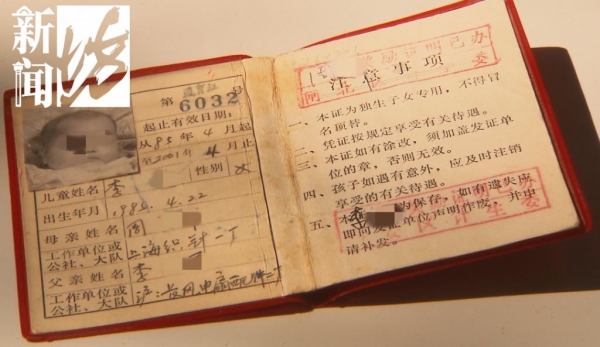 新闻
第6032号
起止有效日期:
从85年4月起
至2001年4月止
性别 女
儿童姓名 李
出生年月 1985.4.22
母亲姓名 周
工作单位或
公社、大队 上海织针二厂
父亲姓名 李
工作单位或
公社、大队
注意事项
一、本证为独生子女专用,不得冒
名顶替。
二、凭证按规定享受有关待遇。
三、本证如有涂改,须加盖发证单
位的章,否则无效。
四、孩子如遇有意外,应及时注销
享受的有关待遇。
五、本 为保存,如有遗失应
即向发证单位声明作废,并申
请补发。